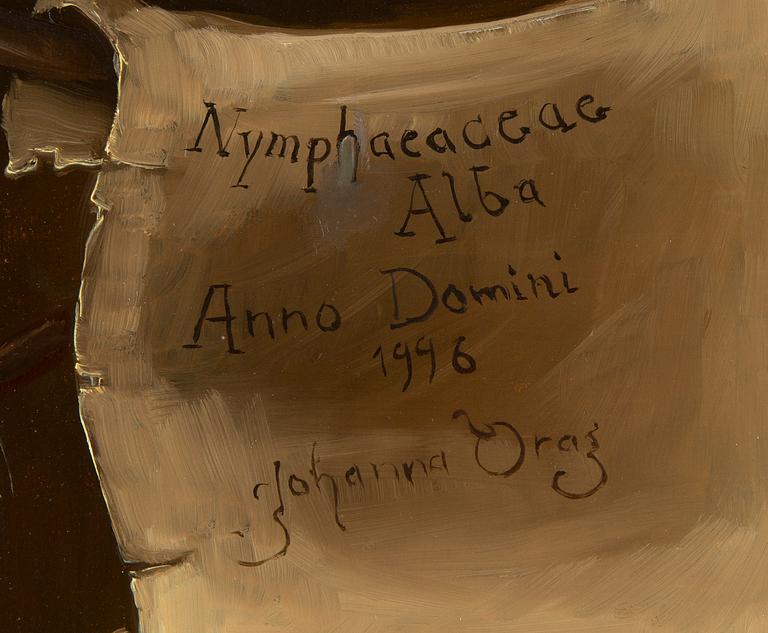 Nymphaeaceae
Alba
Anno Domini
1996
Johanna Oras